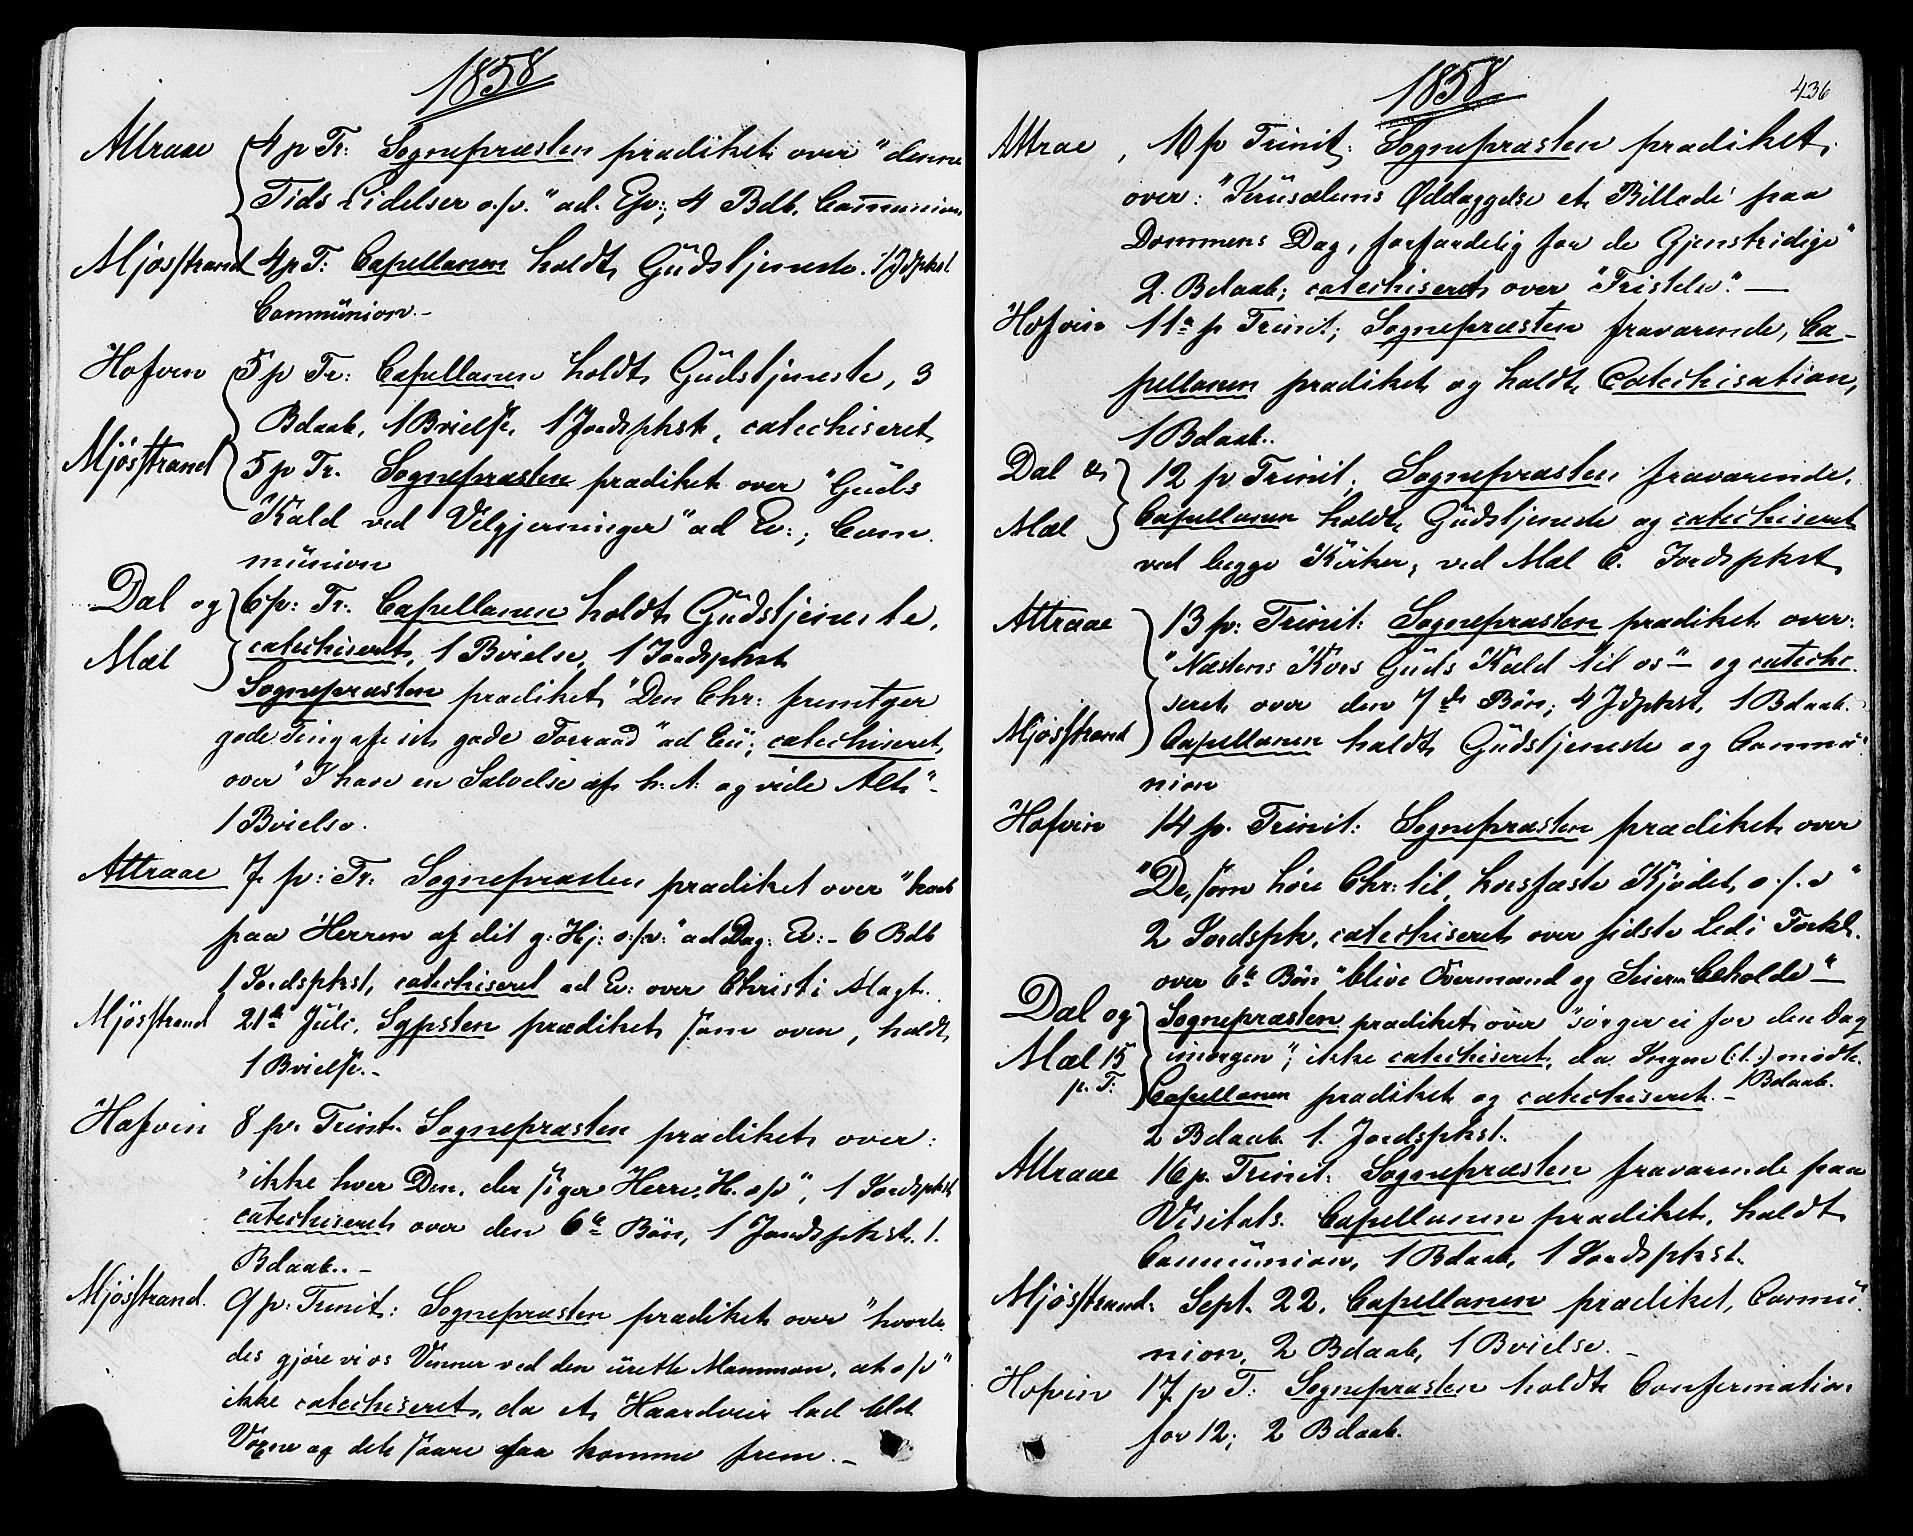 1858
Attraae 4 p Tr: Sognepræsten prædiket over "denne
Tids Lidelser o.s.v." ad. Ep:; 4 Bdb. Communion
Mjösstrand 4 p T: Capellanen holdt Gudstjeneste. 1 Jdpkst
Communion.-
Hofvin 5 p Tr: Capellanen holdt Gudstjeneste, 3
Bdaab, 1 Bvielse, 1 Jordspkst, catechiseret
Mjösstrand 5 p Tr. Sognepræsten prædiket over "Guds
Kald ved Velgjerninger" ad Ev:; Com
munion
Dal og 6 p: Tr: Capellanen holdt Gudstjeneste,
Mæl catechiseret, 1 Bvielse, 1 Jordspkst
Sognepræsten prædiket "Den Chr: fremtger
gode Ting af sit gode Forraad" ad Ev; catechiseret
over "I have en Salvelse af h. A. og vide Alt"-
1 Bvielse.
Attraae 7 p: Tr. Sognepræsten prædiket over "haab
paa Herren af dit g: Hj: o.s.v:" ad Dag: Ev:- 6 Bdb
1 Jordspkst, catechiseret ad Ev: over Christi Magt.
Mjösstrand 21de Juli, Sgpsten prædiket som oven, holdt
1 Bvielse.-
Hofvin 8 p. Trint. Sognepræsten prædiket over:
"ikke hver Den, der siger Herre, H. o.s.v", 1 Jordspkst
catechiseret over den 6te Bön, 1 Jordspkst. 1.
Bdaab.-
Mjösstrand. 9 p: Trinit: Sognepræsten prædiket over "hvorle
des gjöre vi os Venner ved den urette Mammon, at o.s.v"
ikke catechiseret, da et Haardveir lod blot
Voxne og det saare faa komme frem.-
1858 436
Attrae, 10 p Trinit: Sognepræsten prædiket
over: "Jerusalems Ödelæggelse et Billede paa
Dommens Dag, forfærdelig for de Gjenstridige"
2 Bdaab; catechiseret over "Fristelse".-
Hofvin 11te p Trinit; Sognepræsten fraværende, Ca-
pellanen prædiket og holdt Catechisation,
1 Bdaab.
Dal & 12 p Trinit. Sognepræsten fraværende.
Mæl Capellanen holdt Gudstjeneste og catechiseret
ved begge Kirker, ved Mæl 6. Jordspkst
Attraae 13 p: Trinit: Sognepræsten prædiket over:
"Næstens Kors Guds Kald til os"- og catechi
seret over den 7de Bön; 4 Jdpkst, 1 Bdaab.
Mjösstrand Capellanen holdt Gudstjeneste og Commu
nion
Hofvin 14 p. Trinit: Sognepræsten prædiket over
"De, som höre Chr: til, korsfæste Kjödet, o.s.v"
2 Jordspk. catechiseret over sidste Led i Forkl.
over 6te Bön "blive Overmand og Seieren beholde"-
Dal og Sognepræsten prædiket over "sörger ei for den Dag
Mæl 15 imorgen"; ikke catechiseret, da Ingen (:1:) mödte.
p. T: Capellanen prædiket og catechiseret.- 1 Bdaab.
2 Bdaab 1. Jordspkst.
Attraae 16 p. Trinit: Sognepræsten fraværende paa
Visitats. Capellanen prædiket, holdt
Communion, 1 Bdaab, 1 Jordspkst.
Mjösstrand. Sept. 22. Capellanen prædiket, Commu
nion, 2 Bdaab, 1 Bvielse.-
Hofvin 17 p T: Sognepræsten holdt Confirmation
for 12; 2 Bdaab.